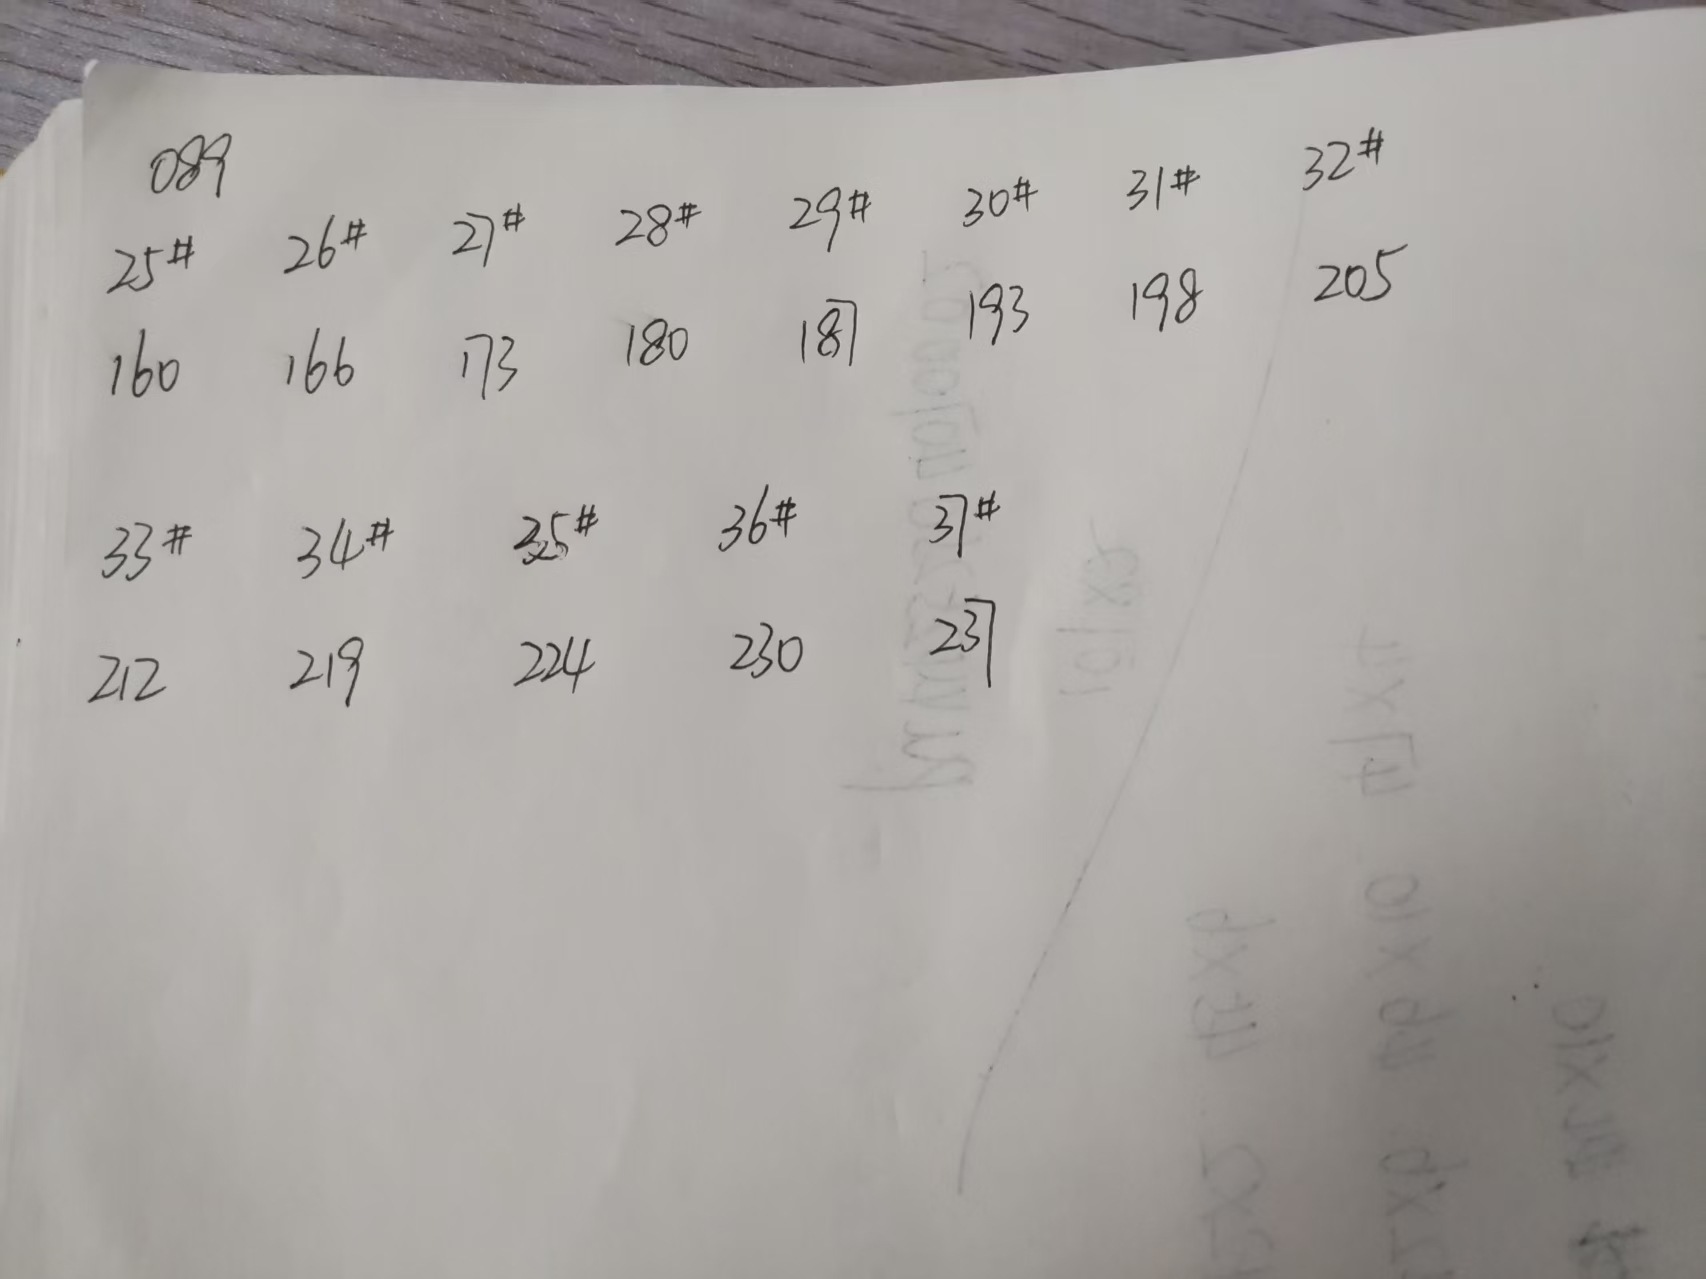 089
25# 26# 27# 28# 29# 30# 31# 32#
160 166 173 180 187 193 198 205
33# 34# 35# 36# 37#
212 219 224 230 237